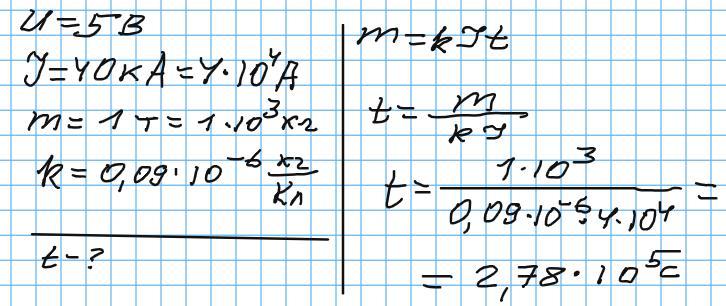 U = 5 В
J = 40 кА = 4 · 10⁴ А
m = 1 т = 1 · 10³ кг
k = 0,09 · 10⁻⁶ кг/Кл
t - ?
m = kJt
t = m/kJ
t = 1 · 10³/0,09 · 10⁻⁶ · 4 · 10⁴ =
= 2,78 · 10⁵ с